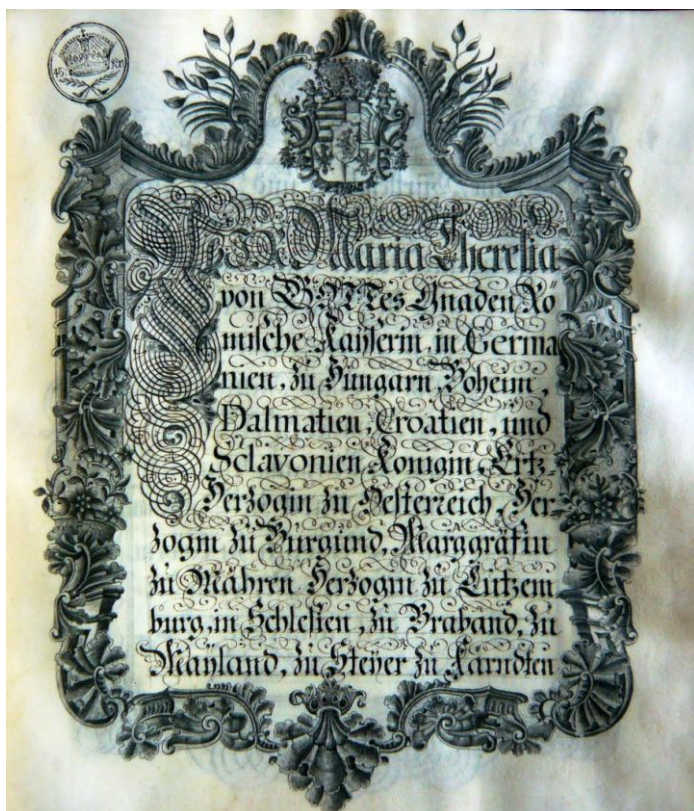 45 Kr.
Wir Maria Theresia
von GOTTes Gnaden Rö-
mische Kaÿserin, in Germa
nien, zu Hungarn, Boheim,
Dalmatien, Croatien, und
Sclavonien Königin Ertz-
Herzogin zu Oesterreich, Her-
zogin zu Burgund, Marggräfin
zu Mähren Herzogin zu Lutzem
burg, in Schlesien, zu Braband, zu
Maÿland, zu Steÿer zu Kärndten